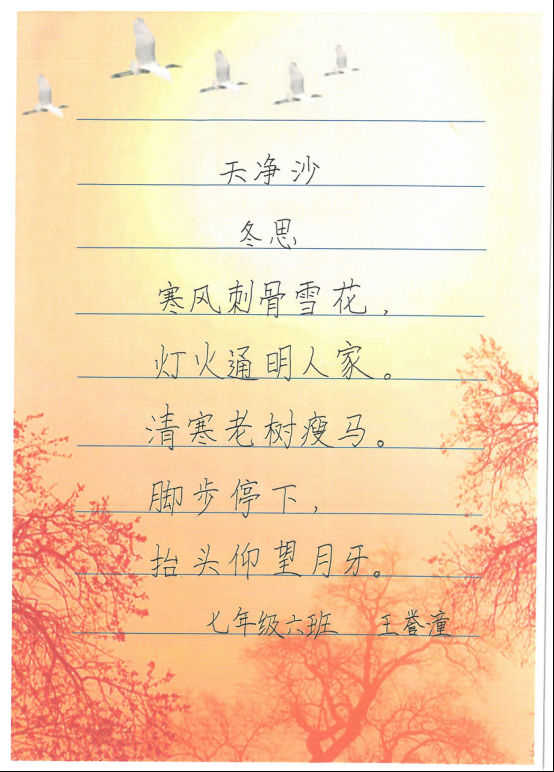 天净沙
冬思
寒风刺骨雪花，
灯火通明人家。
清寒老树瘦马。
脚步停下，
抬头仰望月牙。
七年级六班 王誉潼